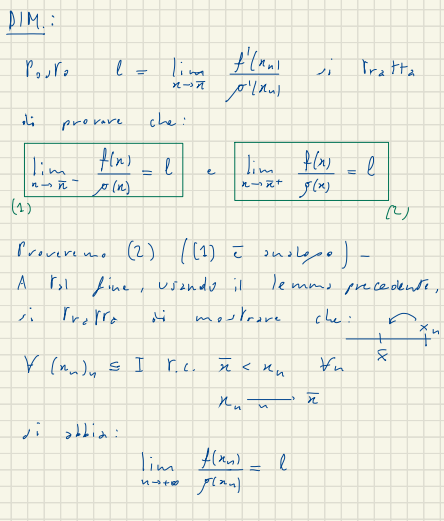 DIM.:
Posto l = lim_{x→x̄} f'(x_n)/g'(x_n) si tratta
di provare che:
lim_{x→x̄⁻} f(x)/g(x) = l e lim_{x→x̄⁺} f(x)/g(x) = l
(1) (2)
Proveremo (2) ((1) è analogo) -
A tal fine, usando il lemma precedente,
si tratta di mostrare che:
x̄ x_n
∀ (x_n)_n ⊆ I t.c. x̄ < x_n ∀n
x_n →_n x̄
si abbia:
lim_{n→+∞} f(x_n)/g(x_n) = l